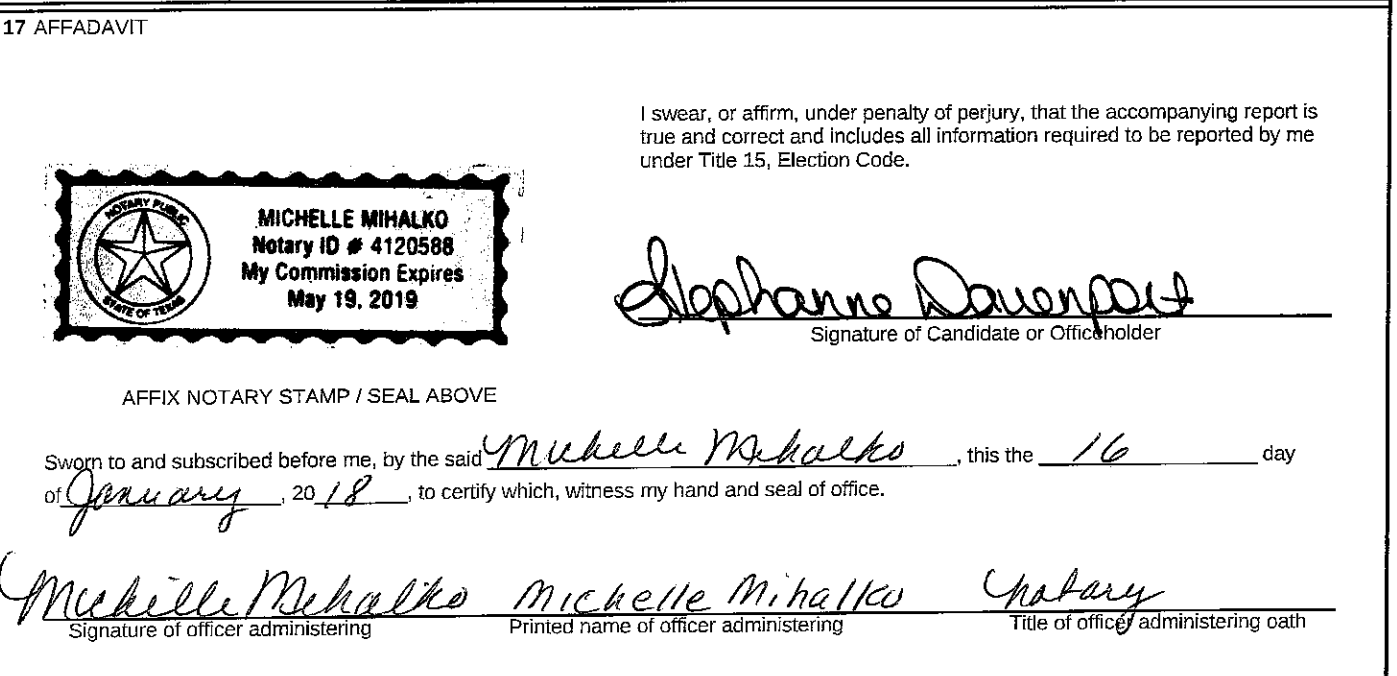 17 AFFADAVIT
I swear, or affirm, under penalty of perjury, that the accompanying report is
true and correct and includes all information required to be reported by me
under Title 15, Election Code.
NOTARY PUBLIC
STATE OF TEXAS
MICHELLE MIHALKO
Notary ID # 4120588
My Commission Expires
May 19, 2019
Stephanne Davenport
Signature of Candidate or Officeholder
AFFIX NOTARY STAMP / SEAL ABOVE
Sworn to and subscribed before me, by the said Michelle Mihalko, this the 16 day
of January, 2018, to certify which, witness my hand and seal of office.
Michelle Mihalko Michelle Mihalko notary
Signature of officer administering Printed name of officer administering Title of officer administering oath